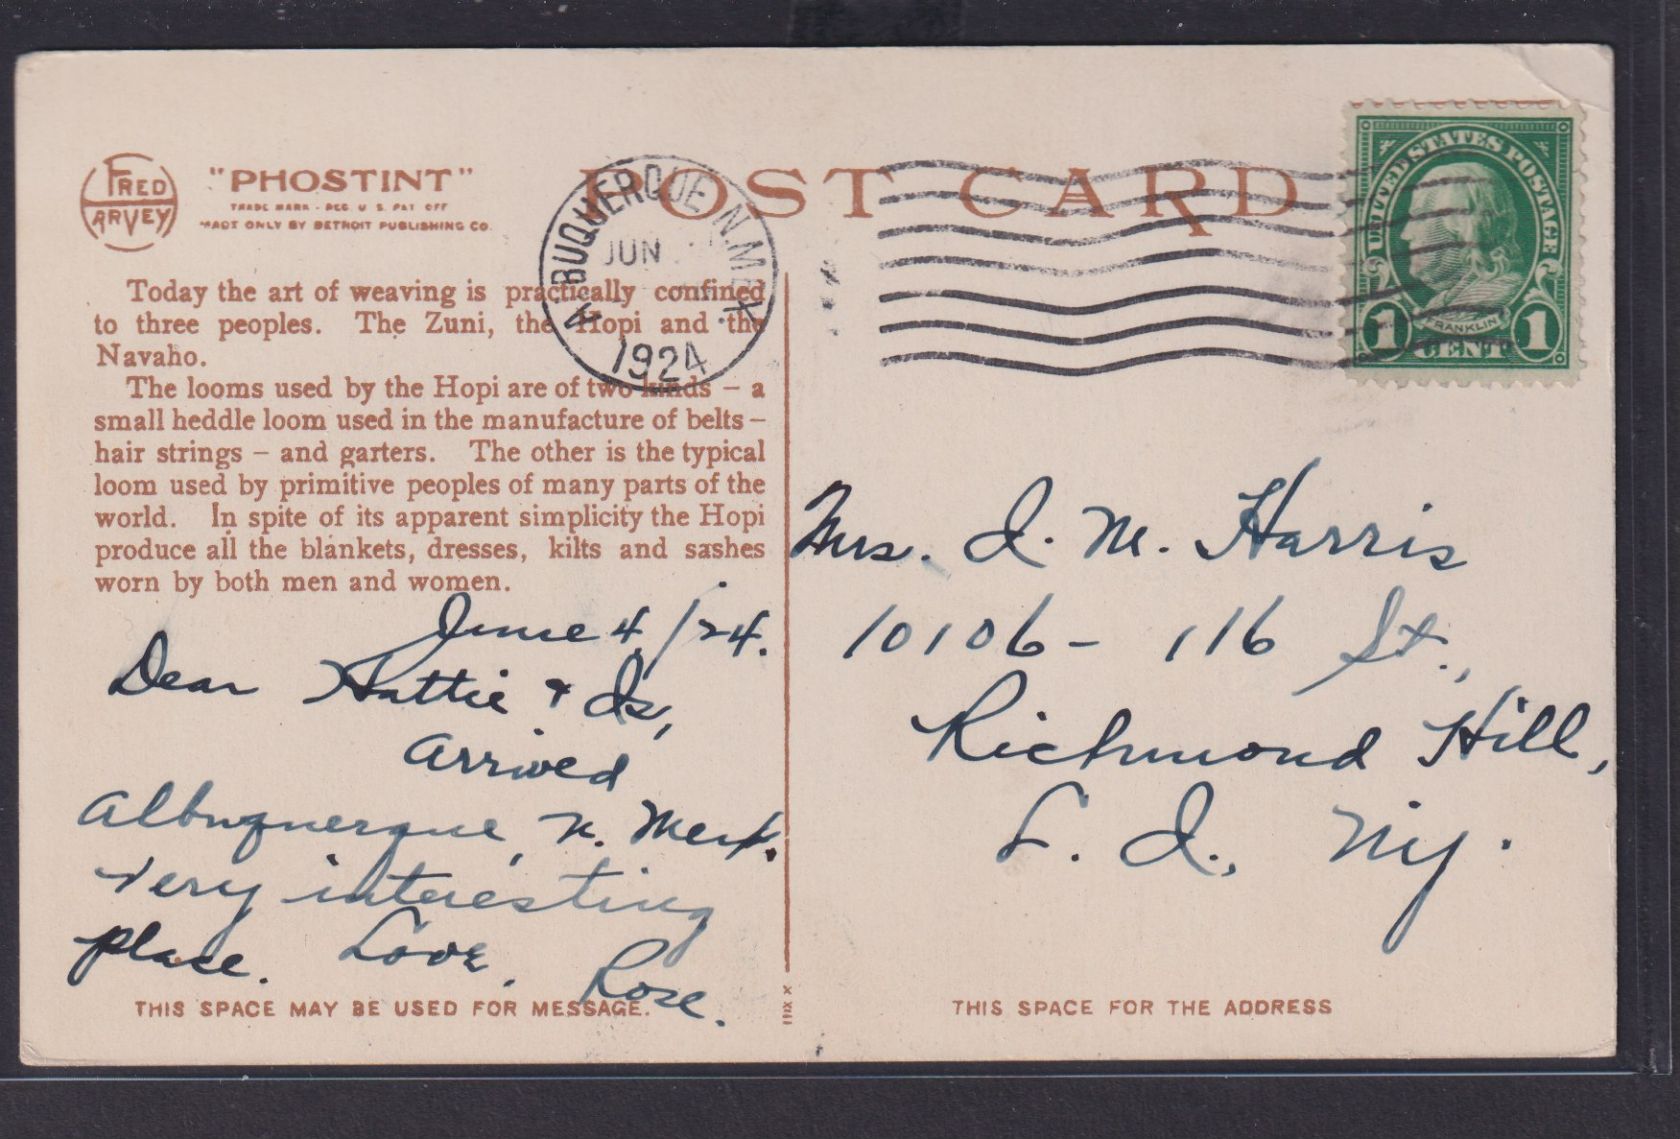 FRED HARVEY
"PHOSTINT"
TRADE MARK - REG U S. PAT OFF
MADE ONLY BY DETROIT PUBLISHING CO.
POST CARD
ALBUQUERQUE N.MEX.
JUN
1924
UNITED STATES POSTAGE
FRANKLIN
1 CENT 1
Today the art of weaving is practically confined
to three peoples. The Zuni, the Hopi and the
Navaho.
The looms used by the Hopi are of two kinds – a
small heddle loom used in the manufacture of belts –
hair strings – and garters. The other is the typical
loom used by primitive peoples of many parts of the
world. In spite of its apparent simplicity the Hopi
produce all the blankets, dresses, kilts and sashes
worn by both men and women.
June 4/24.
Dear Hattie & Is,
Arrived
Albuquerque, N. Mex.
Very interesting
place. Love.
Rose.
THIS SPACE MAY BE USED FOR MESSAGE.
Mrs. I. M. Harris
10106 - 116 St.,
Richmond Hill,
L. I., NY.
THIS SPACE FOR THE ADDRESS